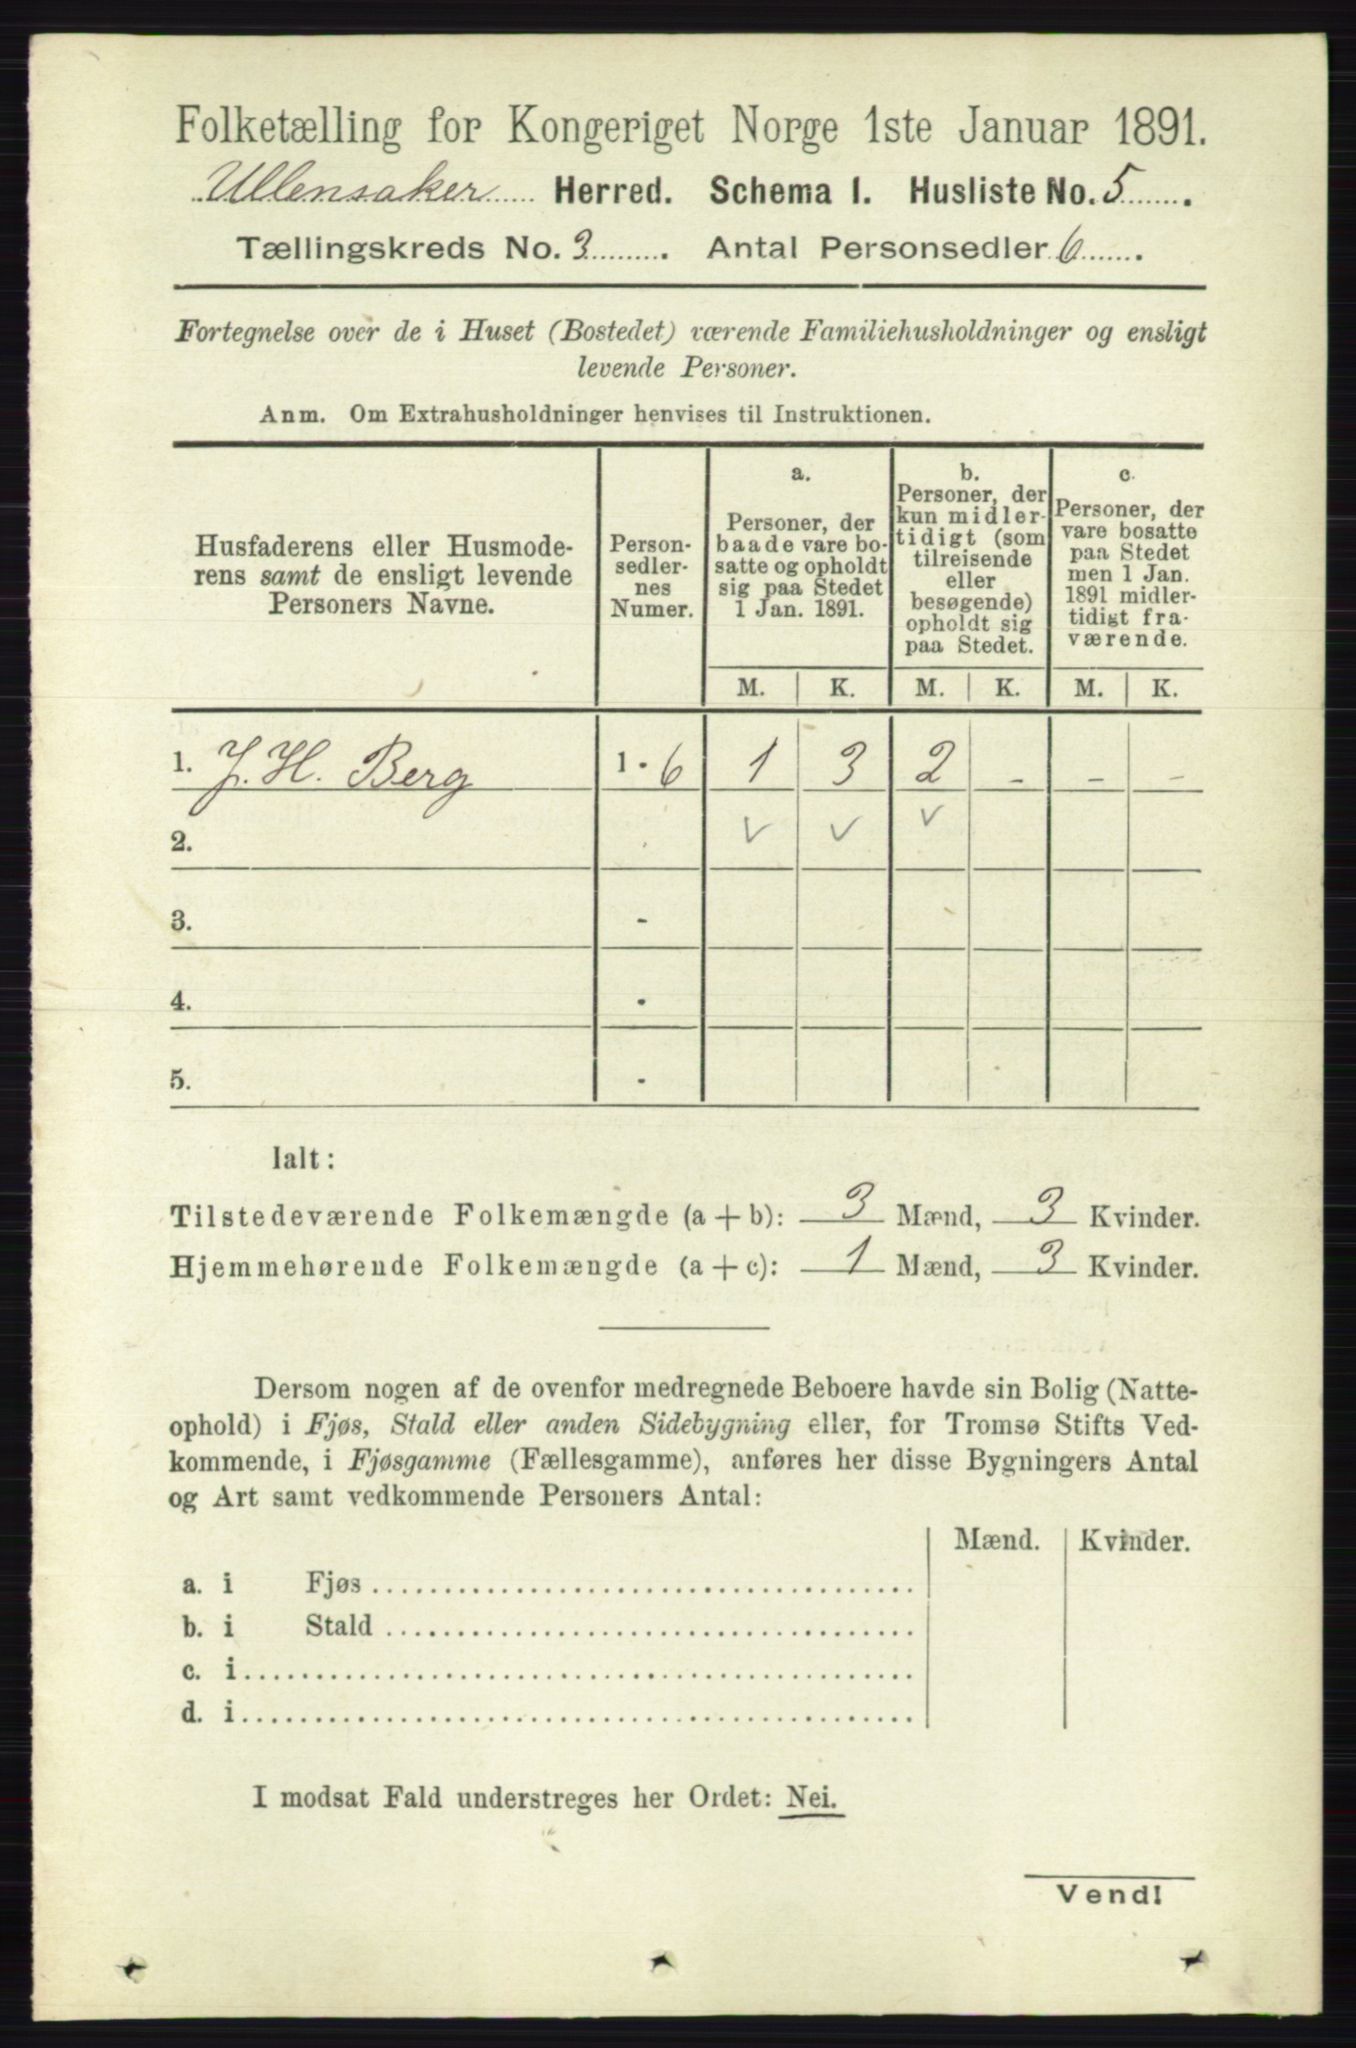 Folketælling for Kongeriget Norge 1ste Januar 1891.
Ullensaker Herred. Schema 1. Husliste No. 5
Tællingskreds No. 3. Antal Personsedler 6.
Fortegnelse over de i Huset (Bostedet) værende Familiehusholdninger og ensligt
levende Personer.
Anm. Om Extrahusholdninger henvises til Instruktionen.
Husfaderens eller Husmode-
rens samt de ensligt levende
Personers Navne.
Person-
sedler-
nes
Numer.
a.
Personer, der
baade vare bo-
satte og opholdt
sig paa Stedet
1 Jan. 1891.
b.
Personer, der
kun midler-
tidigt (som
tilreisende
eller
besøgende)
opholdt sig
paa Stedet.
c.
Personer, der
vare bosatte
paa Stedet
men 1 Jan.
1891 midler-
tidigt fra-
værende.
M. K. M. K. M. K.
1. J. H. Berg 1 - 6 1 3 2 - - -
2. ✓ ✓ ✓
3. -
4. -
5. -
Ialt:
Tilstedeværende Folkemængde (a + b): 3 Mænd, 3 Kvinder.
Hjemmehørende Folkemængde (a + c): 1 Mænd, 3 Kvinder.
Dersom nogen af de ovenfor medregnede Beboere havde sin Bolig (Natte-
ophold) i Fjøs, Stald eller anden Sidebygning eller, for Tromsø Stifts Ved-
kommende, i Fjøsgamme (Fællesgamme), anføres her disse Bygningers Antal
og Art samt vedkommende Personers Antal:
Mænd. Kvinder.
a. i Fjøs
b. i Stald
c. i
d. i
I modsat Fald understreges her Ordet: Nei.
Vend!